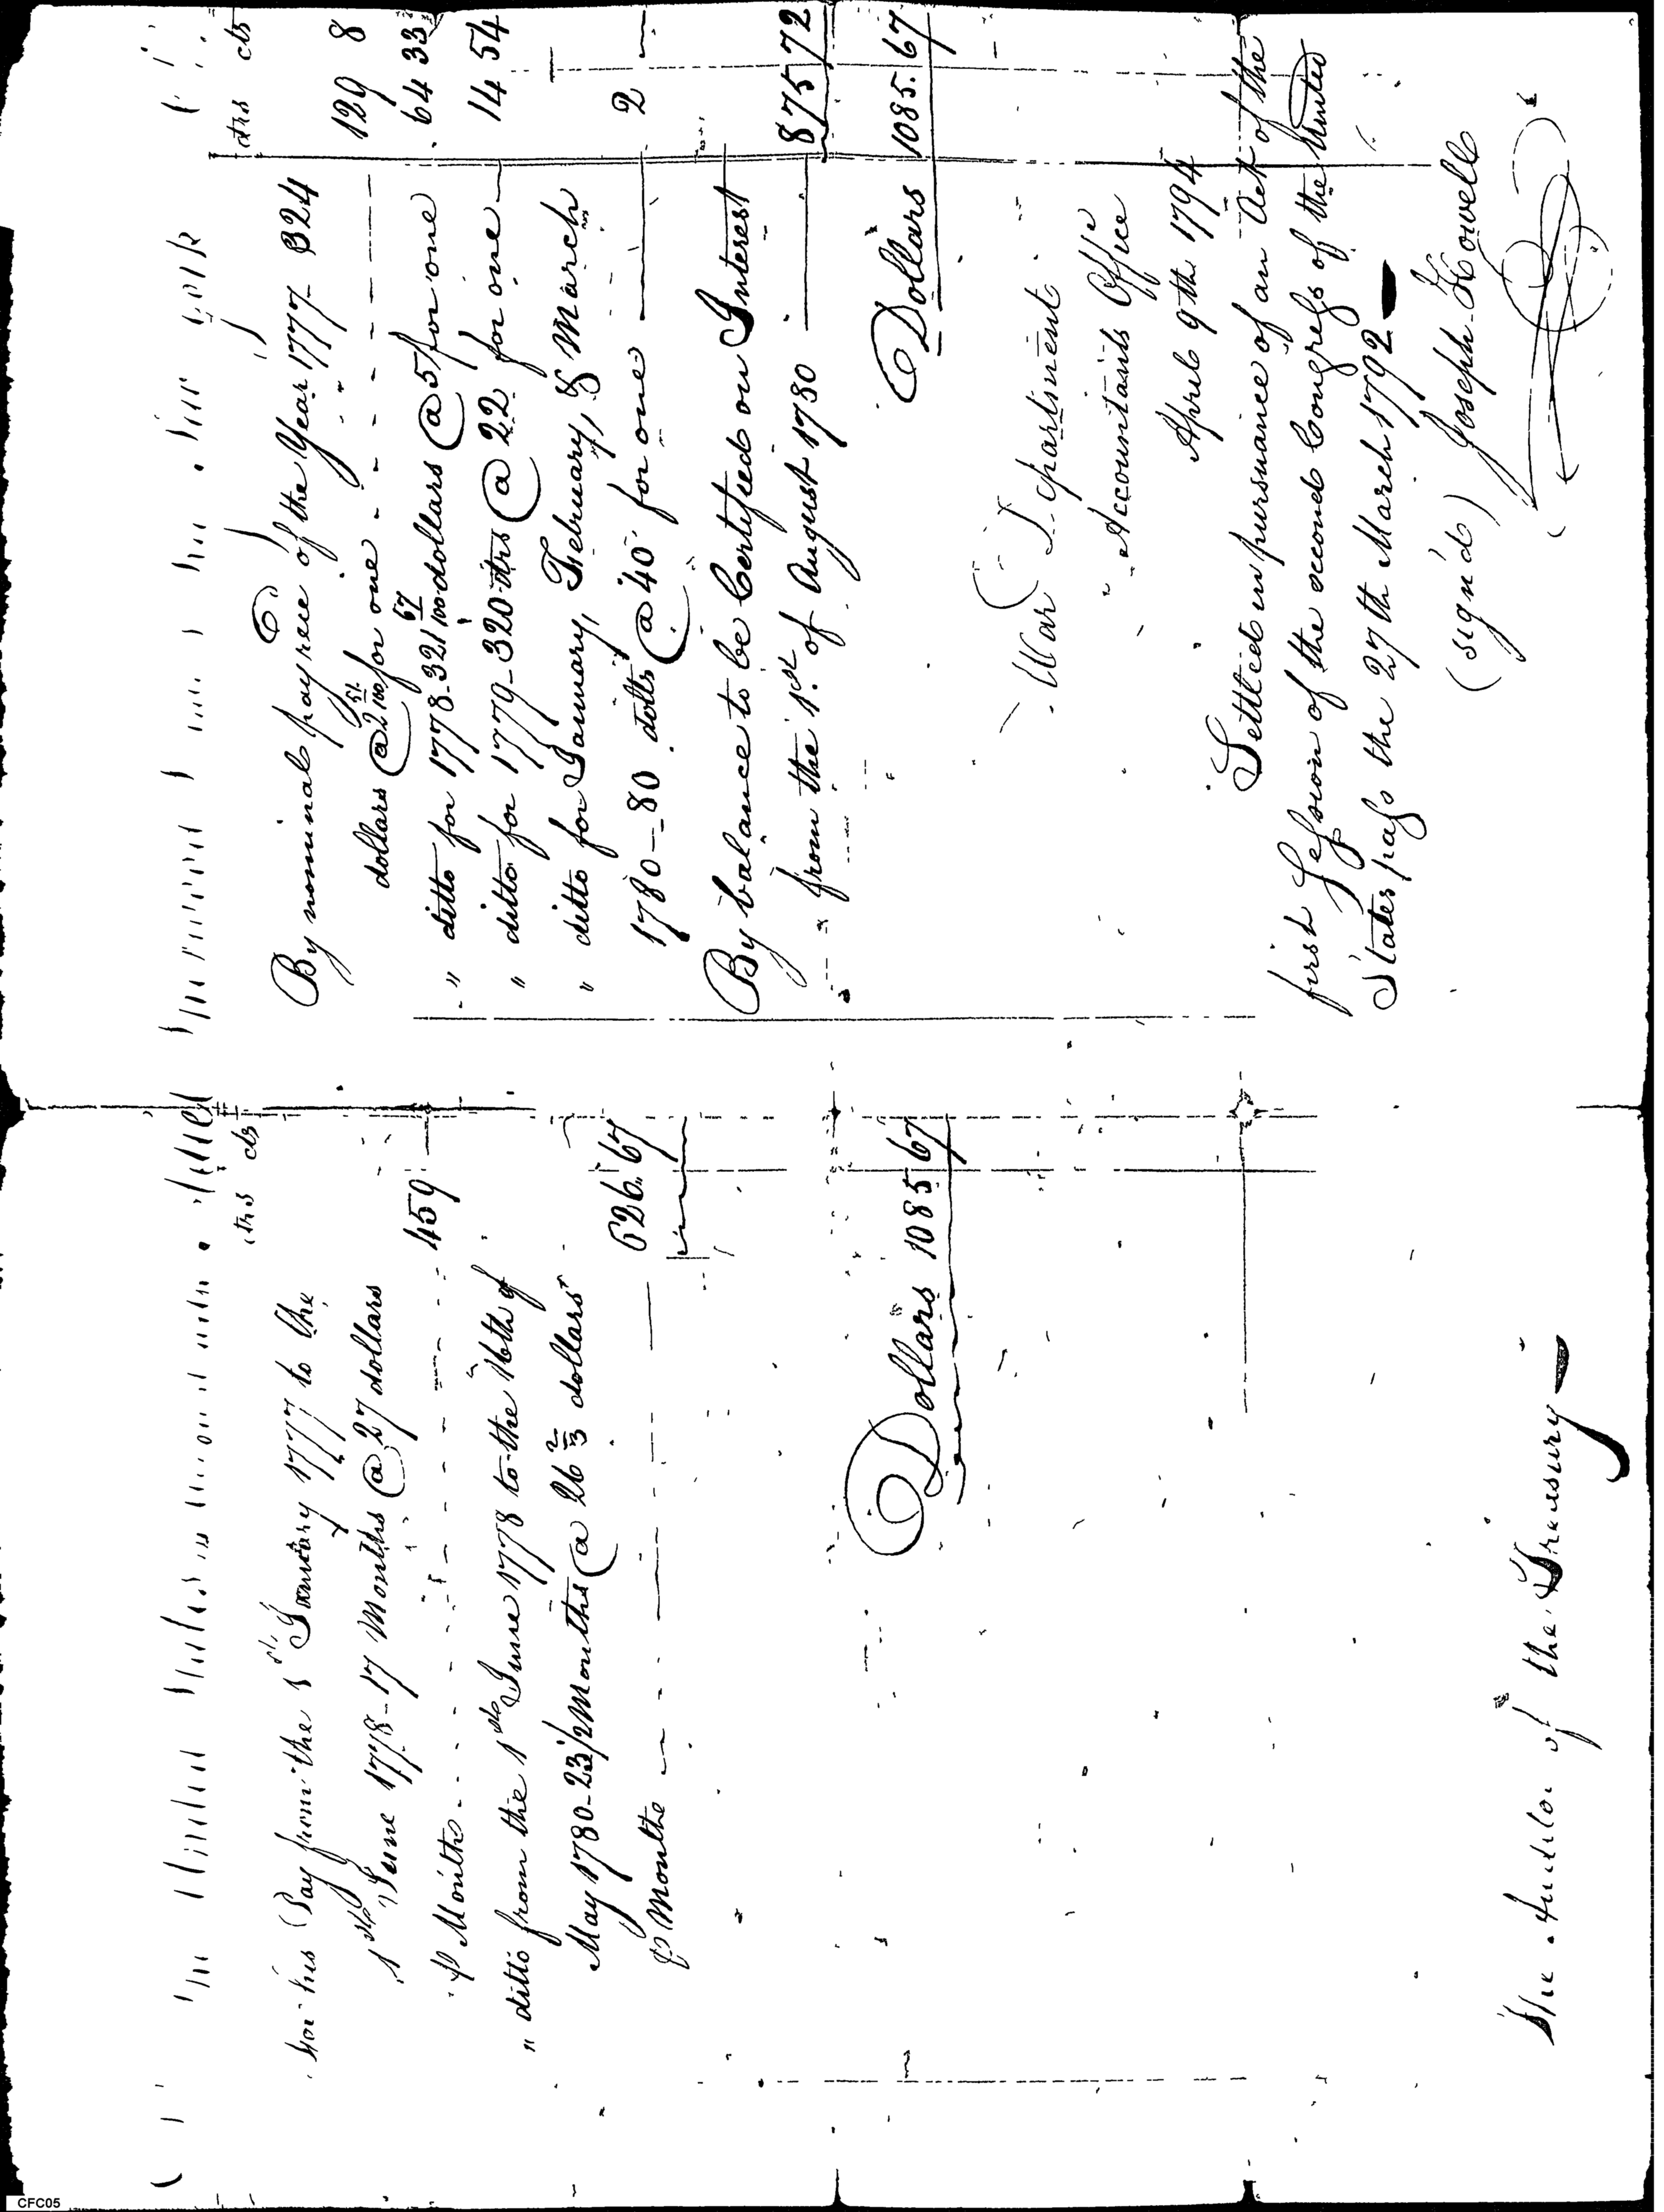 The United States in account with
drs cts
For his Pay from the 1st January 1777 to the
1st June 1778 - 17 Months @ 27 dollars
P Month 459
" ditto from the 1st June 1778 to the 16th of
May 1780 - 23 1/2 Months @ 26 2/3 dollars
P Month 626.67
Dollars 1085 67
The Auditor of the Treasury
New York
drs cts
By nominal pay rece of the Year 1777 - 324
dollars @ 2 51/100 for one 129 8
" ditto for 1778 - 321 67/100 dollars @ 5 for one 64 33
" ditto for 1779 - 320 drs @ 22 for one 14 54
" ditto for January, February, & March
1780 - 80 dolls @ 40 for one 2
By balance to be Certified on Interest
from the 1st of August 1780 875 72
Dollars 1085.67
War Department
Accountants Office
April 9th 1794
Settled in pursuance of an Act of the
first Session of the second Congress of the United
States pass the 27th March 1792
(sign'd) Joseph Howell
CFC05